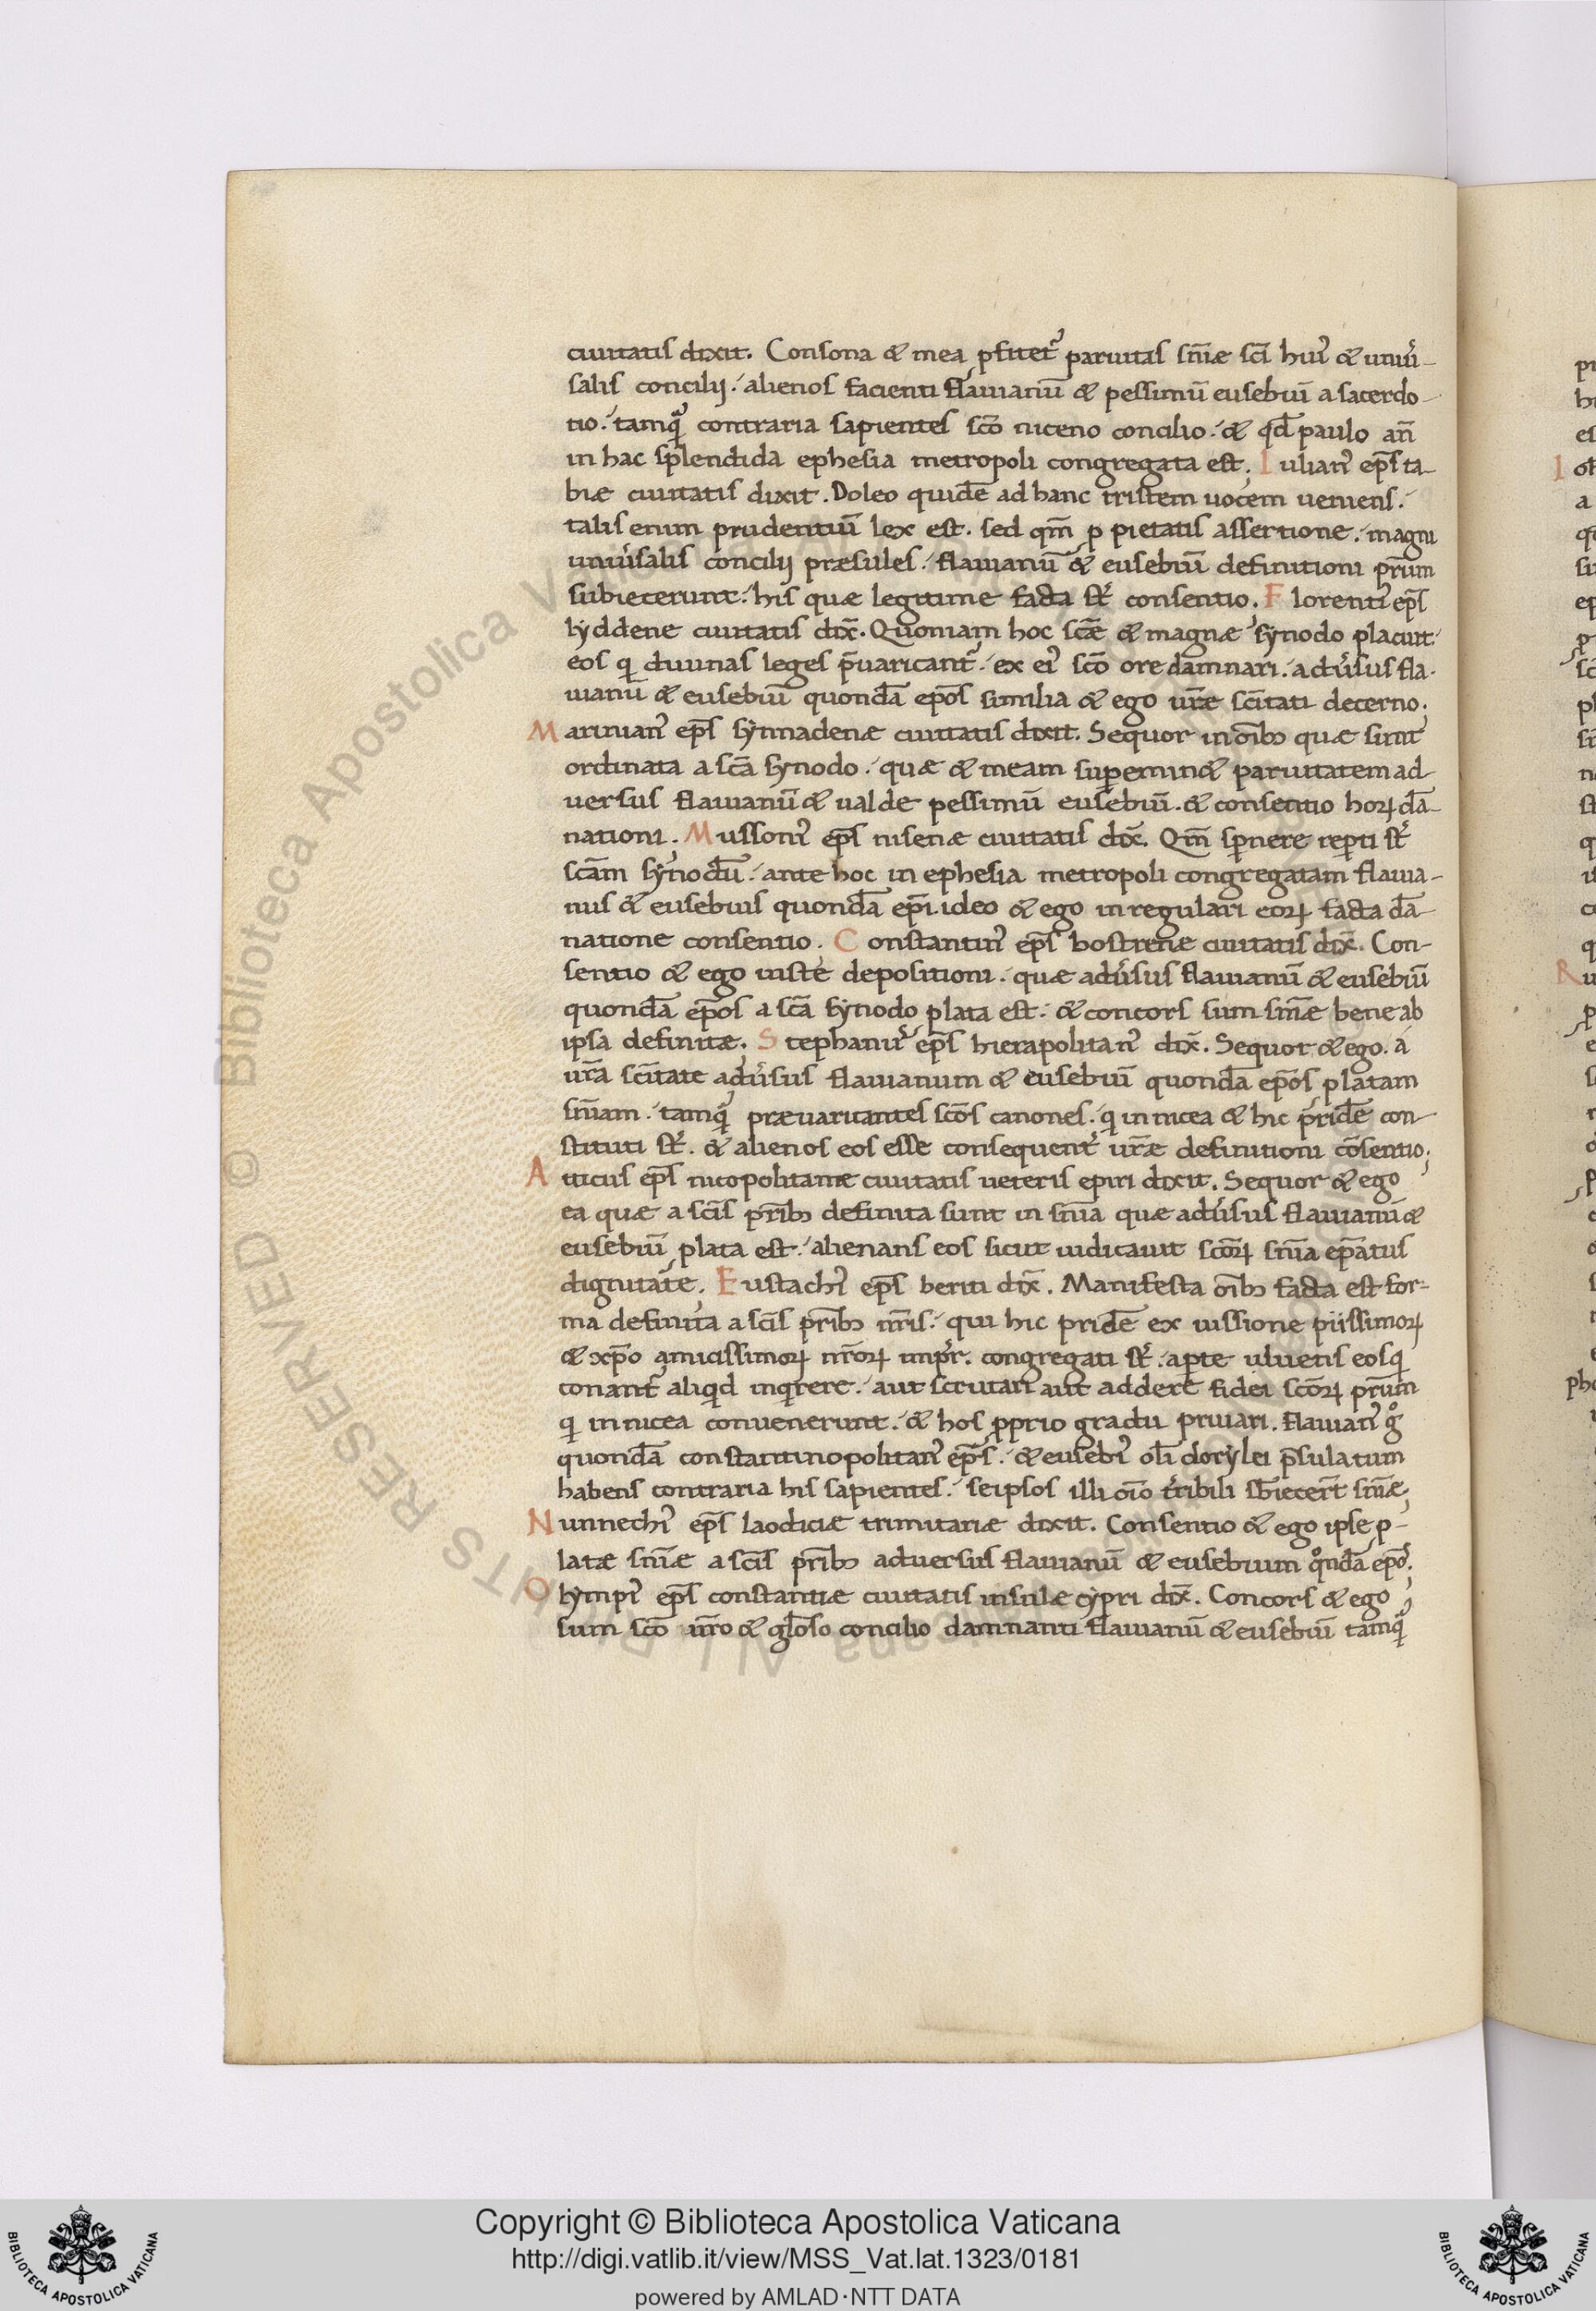 ciuitatis dixit. Consona & mea ꝓfitet᷑ paruitas sn̄iæ sc̄i huiꝰ & uniu̾-
salis concilij. alienos facienti flauianū & pessimū eusebiū a sacerdo-
tio. tamq̃ contraria sapientes sc̄o niceno concilio. & qd̄ paulo an̄
in hac splendida ephesia metropoli congregata est. Iulianꝰ ep̄s ta-
biæ ciuitatis dixit. Doleo quidē ad hanc tristem uocem ueniens.
talis enim prudentiū lex est. sed qm̄ ꝓ pietatis assertione. magni
uniu̾salis concilij præsules. flauianū & eusebiū definitioni pr̄um
subiecerunt. his quæ legitime facta st̾ consentio. Florentiꝰ ep̄s
lẏddene ciuitatis dix̄. Quoniam hoc sc̄æ & magnæ sẏnodo placuit
eos qi diuinas leges p̄uaricant᷑. ex eiꝰ sc̄o ore damnari. adu̾sus fla-
uianū & eusebiū quondā ep̄os similia & ego ur̄æ sc̄itati decerno.
Marinianꝰ ep̄s sẏnnadenæ ciuitatis dixit. Sequor in oīb; quæ sunt
ordinata a sc̄a sẏnodo. quæ & meam supemin& paruitatem ad
uersus flauianū & ualde pessimū eusebiū. & consentio hoꝝ dā-
nationi. Mussoniꝰ ep̄s nisenæ ciuitatis dix̄. Qm̄ spnere repti st̾
sc̄am sẏnodū. ante hoc in ephesia metropoli congregatam flauia-
nus & eusebius quondā ep̄i. ideo & ego in regulari eoꝝ facta dā-
natione consentio. Constantinꝰ ep̄s bostrenæ ciuitatis dix̄. Con-
sentio & ego iuste depositioni. quæ adu̾sus flauianū & eusebiū
quondā ep̄os a sc̄a sẏnodo ꝓlata est. & concors sum sn̄iæ bene ab
ipsa definitæ. Stephanuꝰ ep̄s hierapolitanꝰ dix̄. Sequor & ego. a
ur̄a sc̄itate adu̾sus flauianum & eusebiū quondā ep̄os ꝓlatam
sn̄iam. tamq̃ præuaricantes sc̄os canones. qi in nicea & hic pridē con-
stituti st̾. & alienos eos esse consequent̾ ur̄æ definitioni cōsentio.
Atticus ep̄s nicopolitanæ ciuitatis ueteris epiri dixit. Sequor & ego
ea quæ a sc̄is pr̄ib; definita sunt in sn̄ia quæ adu̾sus flauianū &
eusebiū ꝓlata est. alienans eos sicut iudicauit sc̄oꝝ sn̄ia ep̄atus
dignitate. Eustachiꝰ ep̄s beriti dix̄. Manifesta oīb; facta est for-
ma definita a sc̄is pr̄ib; nr̄is. qui hic pridē ex iussione piissimoꝝ
& xp̄o amicissimoꝝ nr̄oꝝ imp̾r. congregati st̾. apte uluetis eos qi
conant᷑ aliqid inqirere. aut scrutari aut addere fidei sc̄oꝝ pr̄um
qi in nicea conuenerunt. & hos ꝓprio gradu priuari. flauianꝰ gͦ
quondā constantinopolitanꝰ ep̄s. & eusebiꝰ oli̅ dorẏlei p̄sulatum
habens contraria his sapientes. seipsos illi oīo t̾ribili sb̄iecer̄t sn̄iæ.
Nunnechiꝰ ep̄s laodiciæ trimitariæ dixit. Consentio & ego ipse ꝓ-
latæ sn̄iæ a sc̄is pr̄ib; aduersus flauianū & eusebium qͦndā ep̄os.
Olẏmpiꝰ ep̄s constantiæ ciuitatis insulæ cẏpri dix̄. Concors & ego
sum sc̄o ur̄o & gl̄oso concilio damnanti flauianū & eusebiū tamq̃
Copyright © Biblioteca Apostolica Vaticana
http://digi.vatlib.it/view/MSS_Vat.lat.1323/0181
powered by AMLAD·NTT DATA